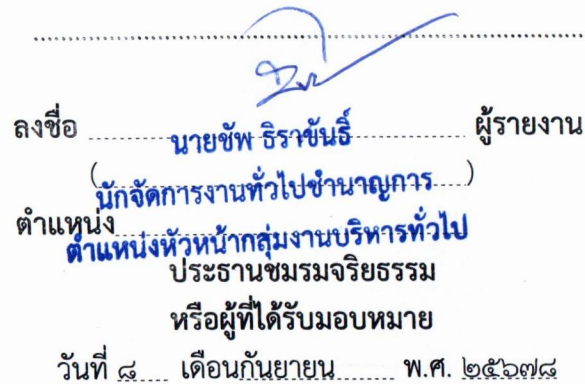 ลงชื่อ นายชัพ ธิราขันธิ์ ผู้รายงาน
(นักจัดการงานทั่วไปชำนาญการ)
ตำแหน่ง
ตำแหน่งหัวหน้ากลุ่มงานบริหารทั่วไป
ประธานชมรมจริยธรรม
หรือผู้ที่ได้รับมอบหมาย
วันที่ ๘ เดือนกันยายน พ.ศ. ๒๕๖๗๘